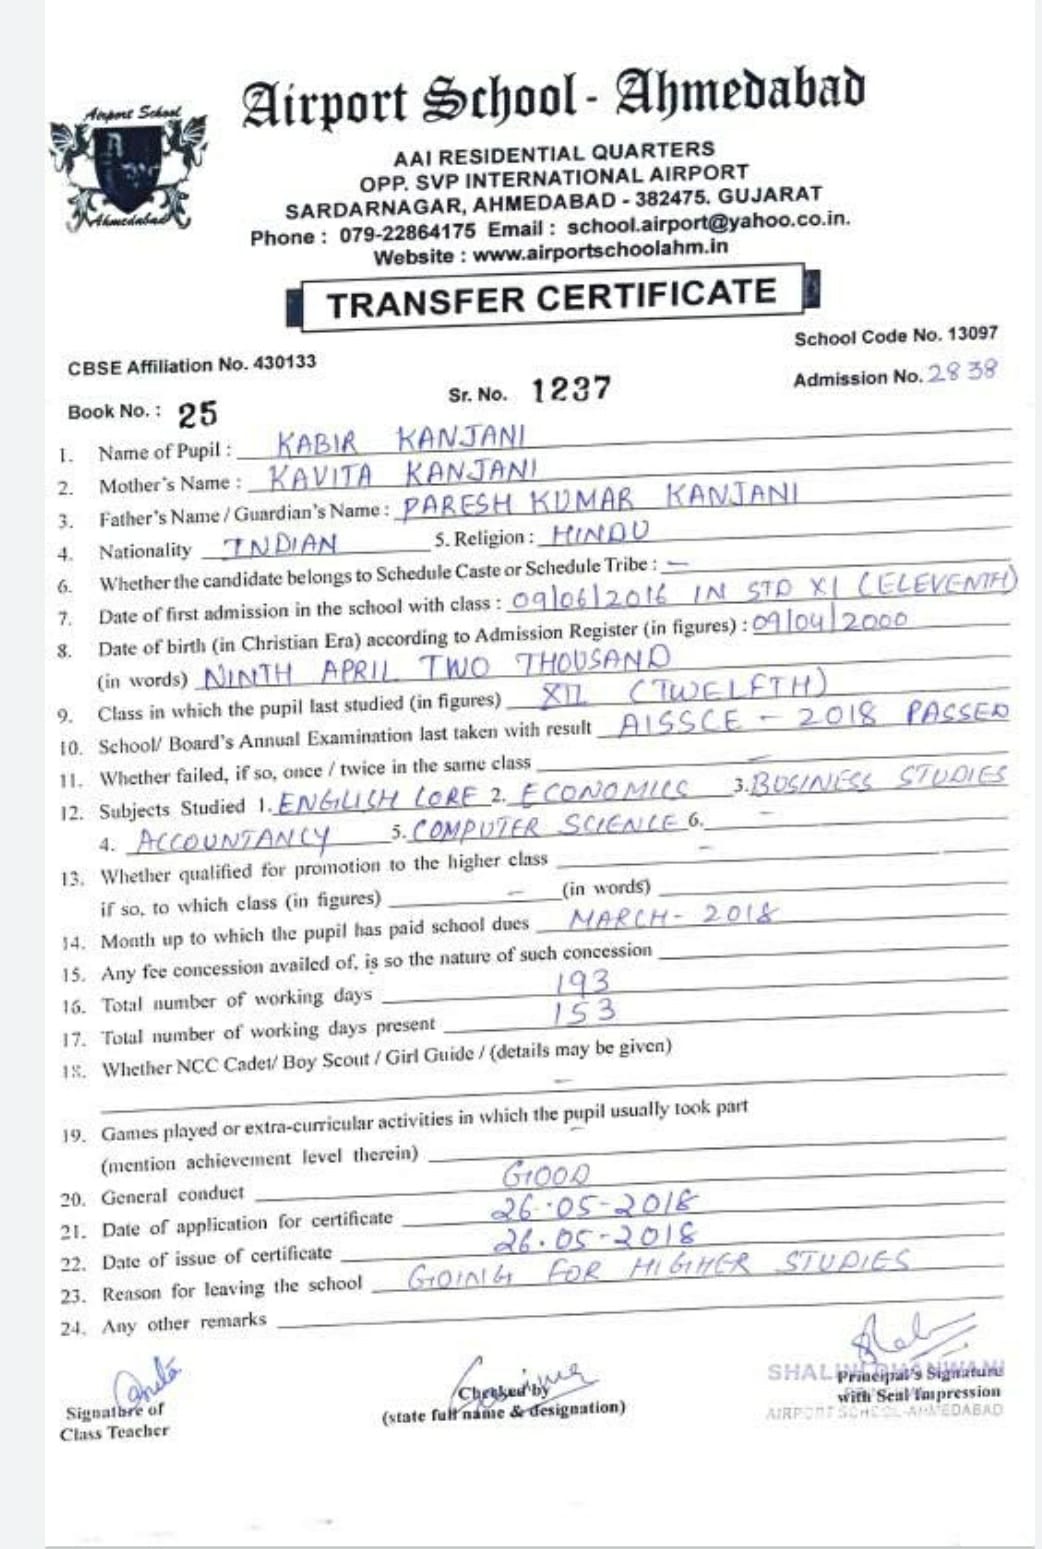 Airport School
Ahmedabad
Airport School - Ahmedabad
AAI RESIDENTIAL QUARTERS
OPP. SVP INTERNATIONAL AIRPORT
SARDARNAGAR, AHMEDABAD - 382475. GUJARAT
Phone : 079-22864175 Email : school.airport@yahoo.co.in.
Website : www.airportschoolahm.in
TRANSFER CERTIFICATE
CBSE Affiliation No. 430133 School Code No. 13097
Book No. : 25 Sr. No. 1237 Admission No. 2838
1. Name of Pupil : KABIR KANJANI
2. Mother's Name : KAVITA KANJANI
3. Father's Name / Guardian's Name : PARESH KUMAR KANJANI
4. Nationality INDIAN 5. Religion : HINDU
6. Whether the candidate belongs to Schedule Caste or Schedule Tribe : —
7. Date of first admission in the school with class : 09/06/2016 IN STD XI (ELEVENTH)
8. Date of birth (in Christian Era) according to Admission Register (in figures) : 09/04/2000
(in words) NINTH APRIL TWO THOUSAND
9. Class in which the pupil last studied (in figures) XII (TWELFTH)
10. School/ Board's Annual Examination last taken with result AISSCE - 2018 PASSED
11. Whether failed, if so, once / twice in the same class —
12. Subjects Studied 1. ENGLISH CORE 2. ECONOMICS 3. BUSINESS STUDIES
4. ACCOUNTANCY 5. COMPUTER SCIENCE 6. —
13. Whether qualified for promotion to the higher class —
if so, to which class (in figures) — (in words)
14. Month up to which the pupil has paid school dues MARCH - 2018
15. Any fee concession availed of, is so the nature of such concession
16. Total number of working days 193
17. Total number of working days present 153
18. Whether NCC Cadet/ Boy Scout / Girl Guide / (details may be given)
—
19. Games played or extra-curricular activities in which the pupil usually took part
(mention achievement level therein)
20. General conduct GOOD
21. Date of application for certificate 26-05-2018
22. Date of issue of certificate 26.05-2018
23. Reason for leaving the school GOING FOR HIGHER STUDIES
24. Any other remarks
Signature of
Class Teacher
Checked by
(state full name & designation)
Principal's Signature
with Seal Impression
AIRPORT SCHOOL-AHMEDABAD